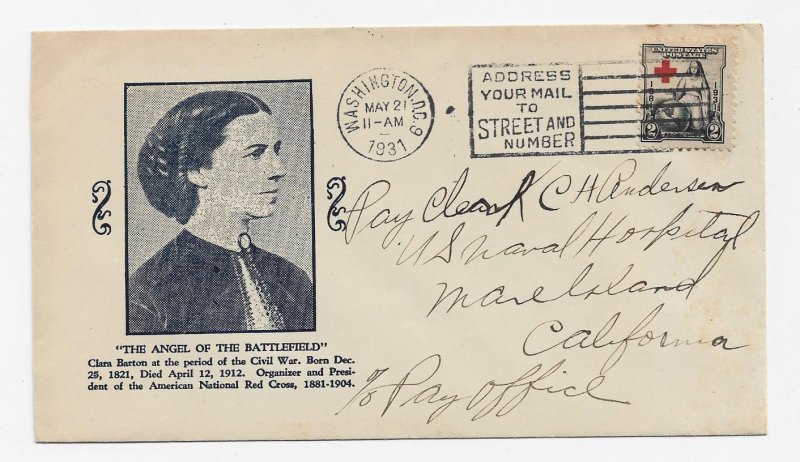 "THE ANGEL OF THE BATTLEFIELD"
Clara Barton at the period of the Civil War. Born Dec.
25, 1821, Died April 12, 1912. Organizer and Presi-
dent of the American National Red Cross, 1881-1904.
WASHINGTON, D.C. 9
MAY 21
11-AM
1931
ADDRESS
YOUR MAIL
TO
STREET AND
NUMBER
UNITED STATES
POSTAGE
2 2
Pay Clerk C H Andersen
US Naval Hospital
Mare Island
California
c/o Pay Office